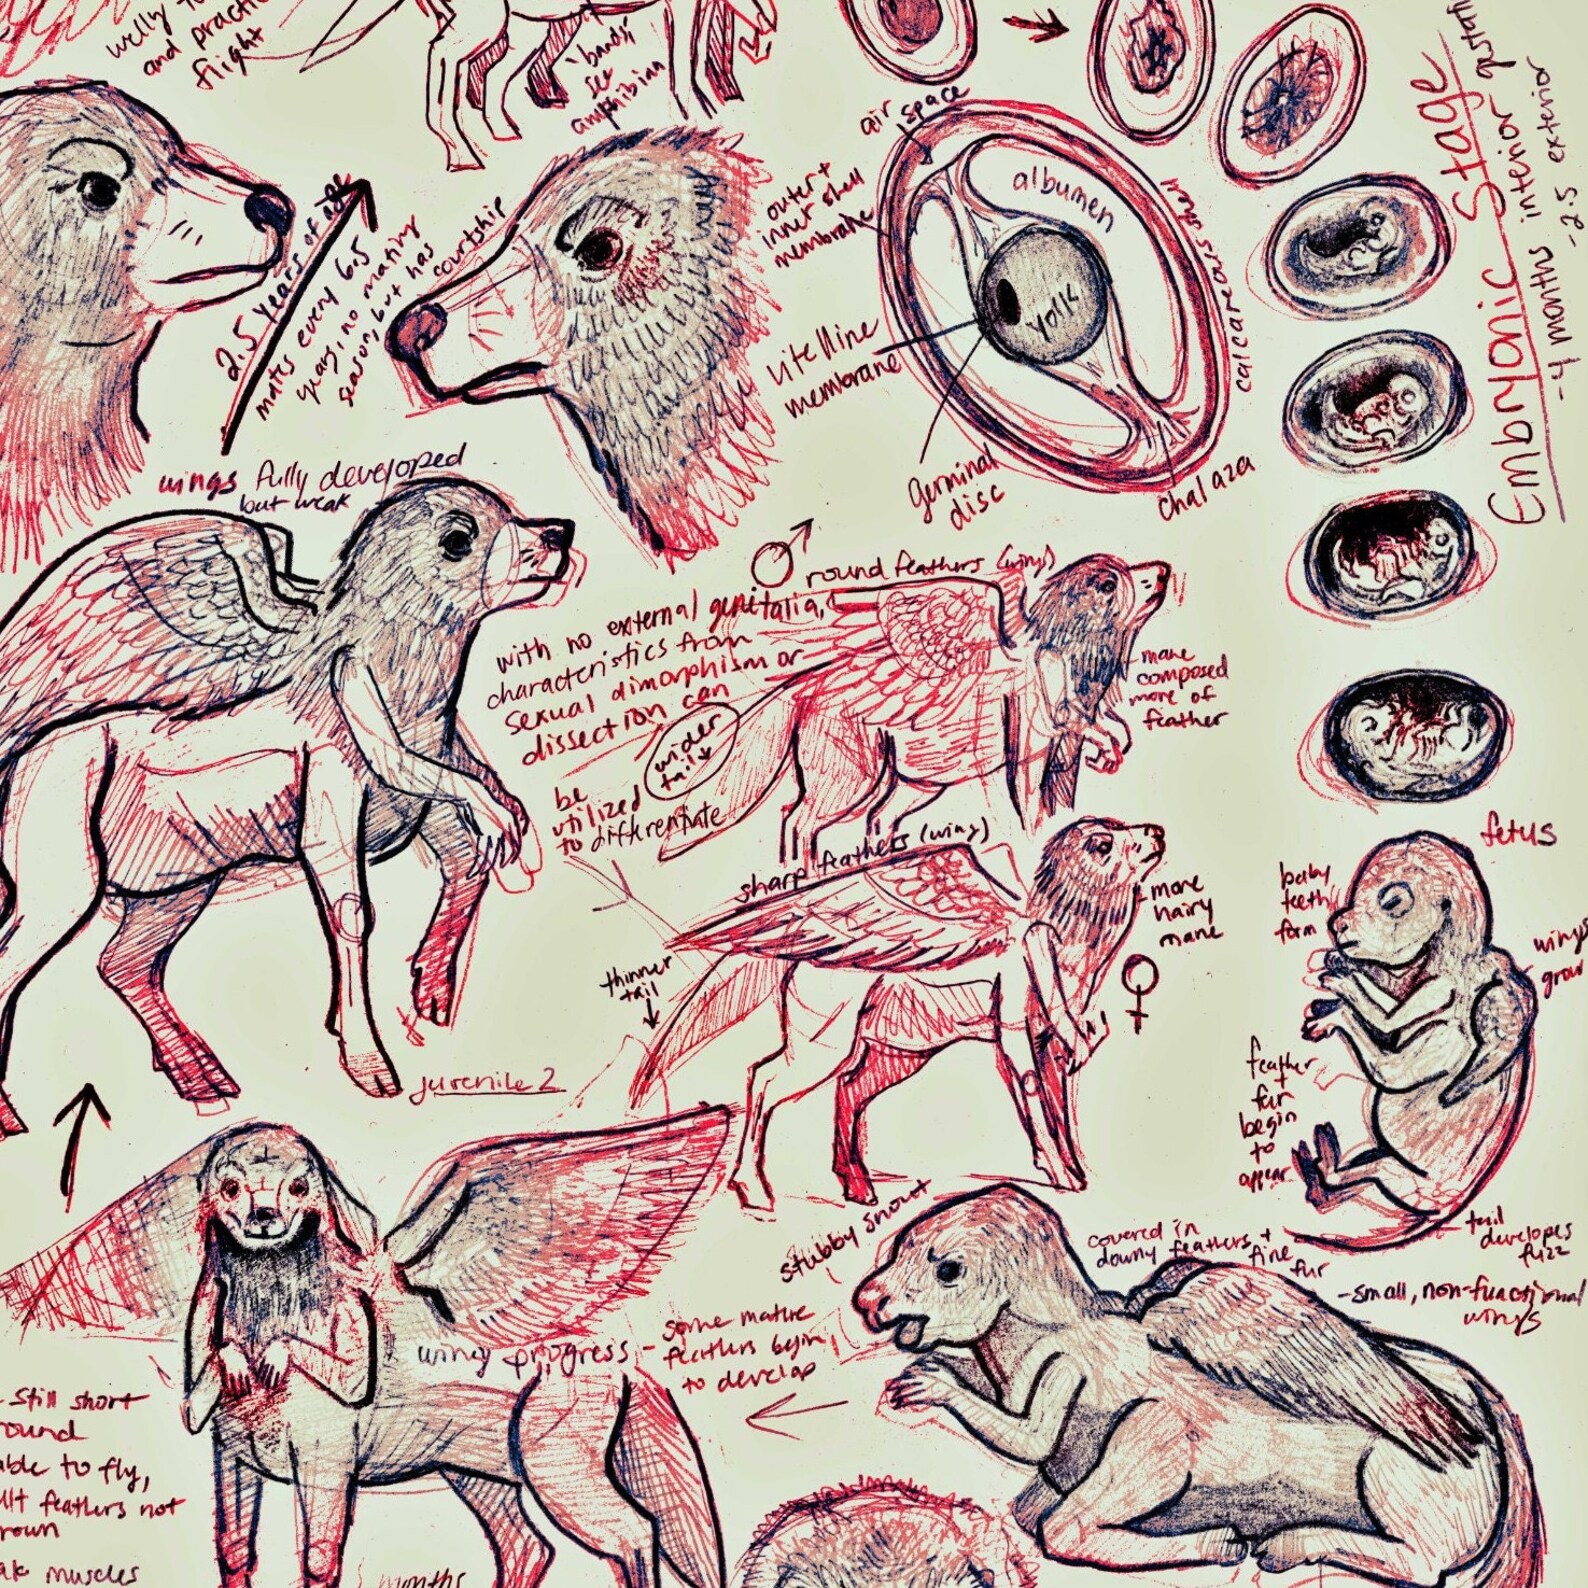 and practice
flight
bands,
see
amphibian
2.5 years of age
mates every 6.5
years, no mating
season, but has
courtship
air space
outer +
inner shell
membrane
albumen
yolk
calcareous shell
vitelline
membrane
germinal
disc
chalaza
Embryonic Stage
~4 months interior
~2.5 exterior
wings fully developed
but weak
♂
round feathers (wings)
with no external genitalia,
characteristics from
sexual dimorphism or
dissection can
be
utilized
to differentiate
wider
tail
mane
composed
more of
feather
sharp feathers (wing)
more
hairy
mane
♀
thinner
tail
juvenile 2
fetus
baby
teeth
form
wings
grow
feather
+
fur
begin
to
appear
tail
develops
fuzz
stubby snout
covered in
downy feathers +
fine
fur
-small, non-functional
wings
wing progress -
some mature
feathers begin
to develop
- still short
round
able to fly,
feathers not
muscles
months